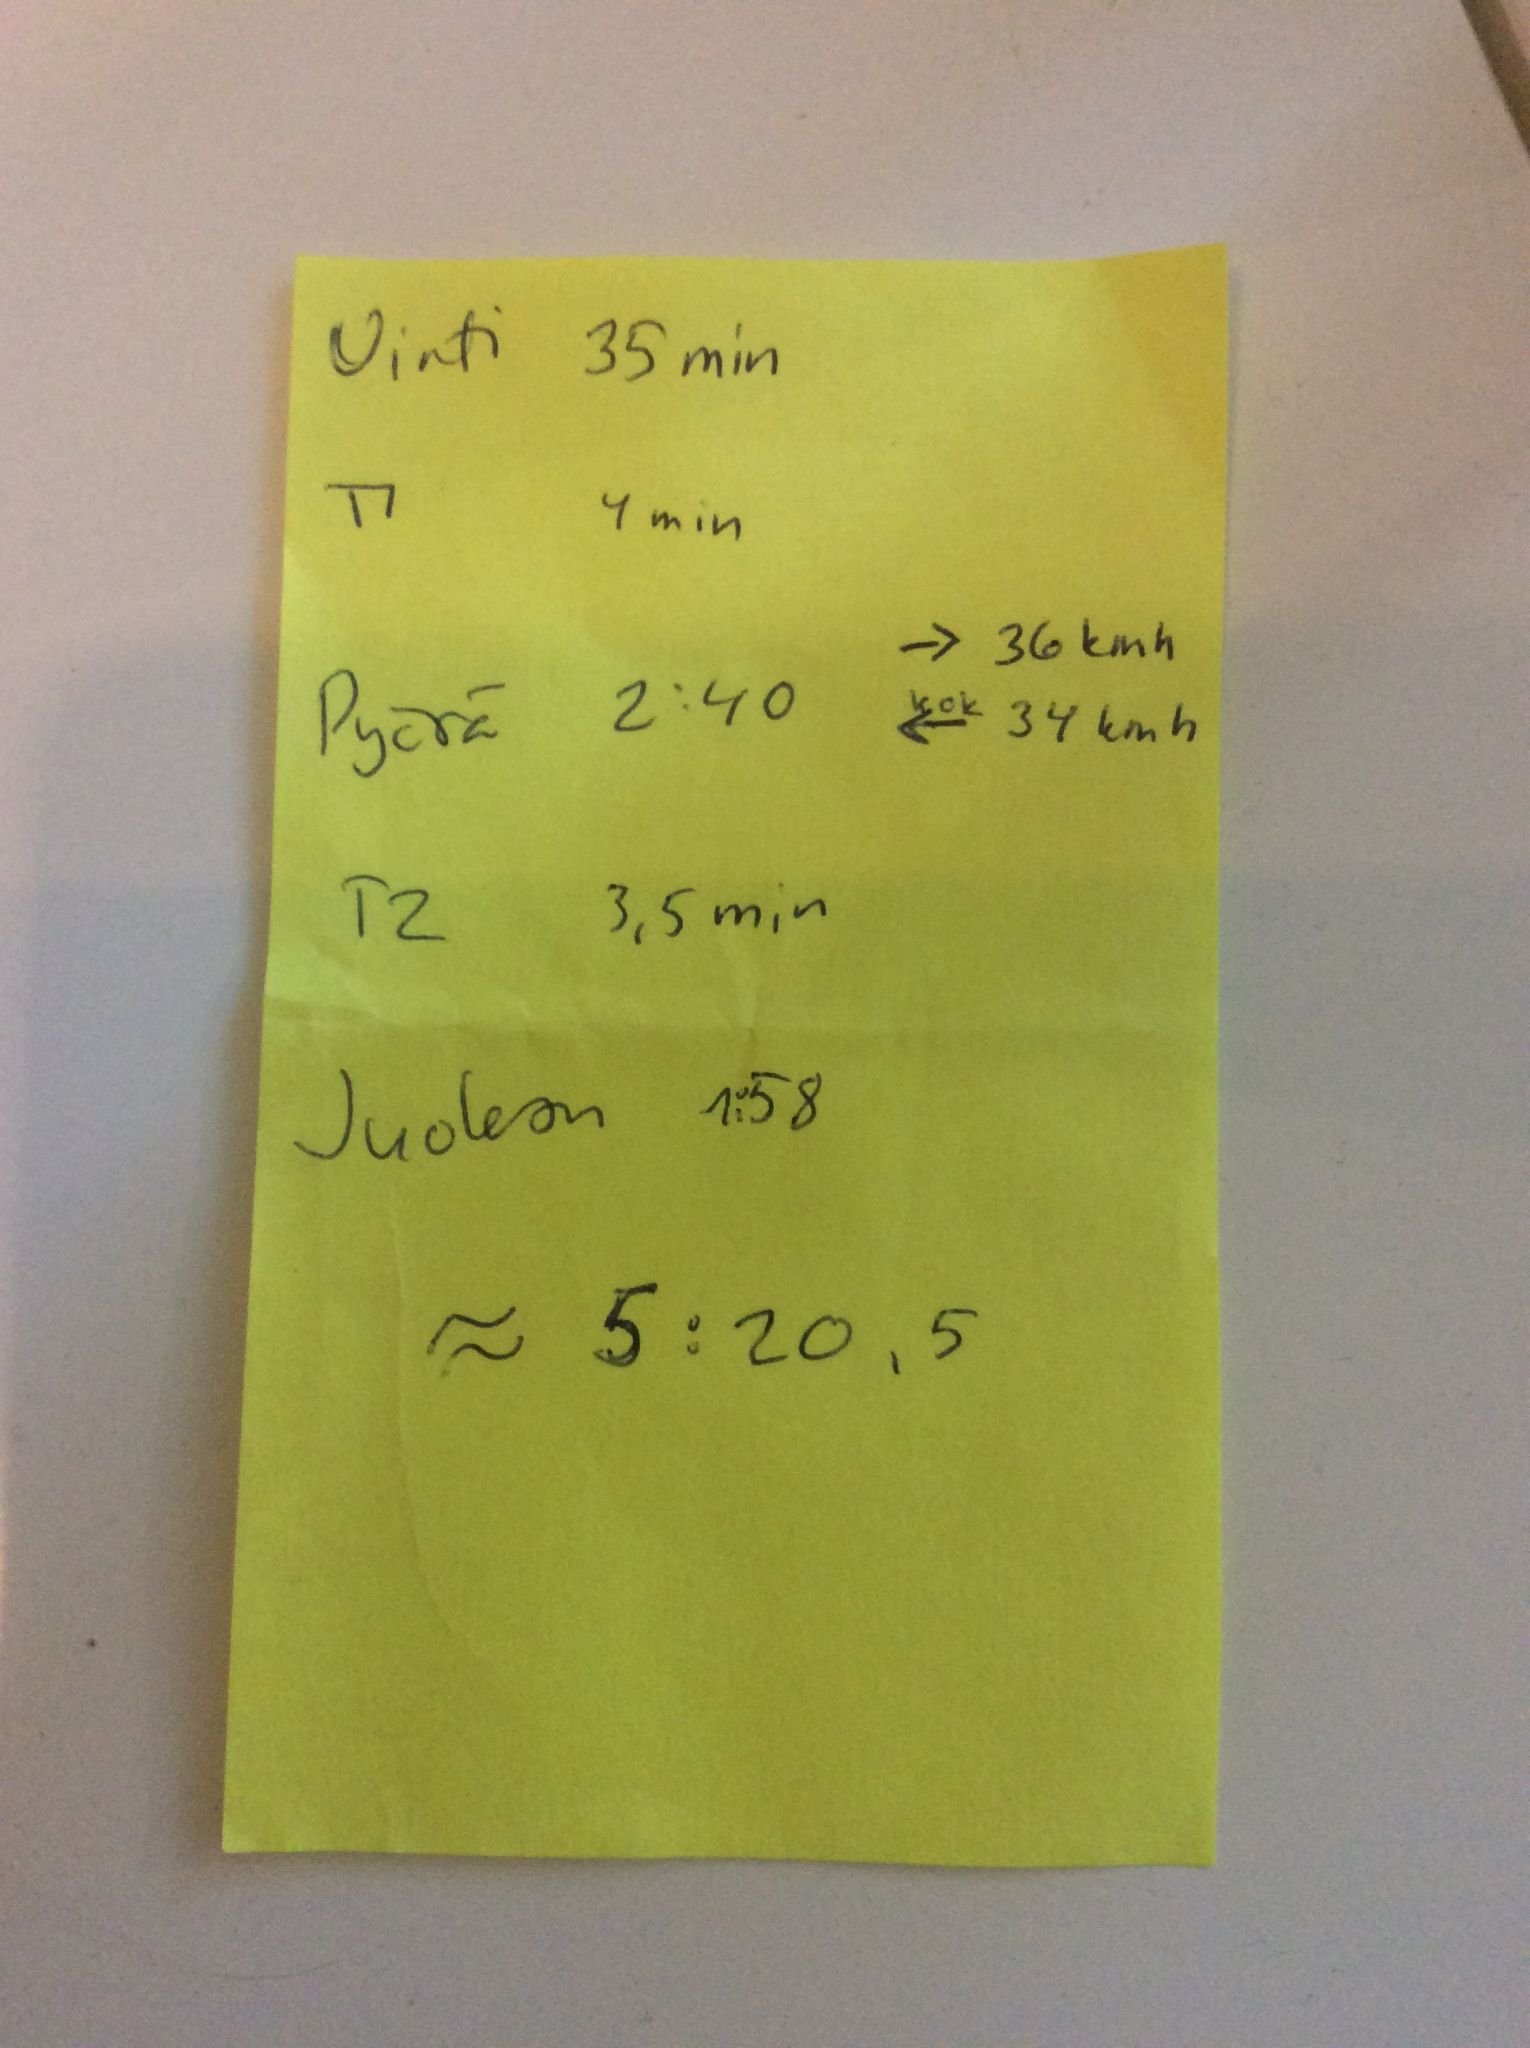 Uinti 35 min
T1 4 min
→ 36 kmh
Pyörä 2:40
kok
← 34 kmh
T2 3,5 min
Juoksu 1:58
≈ 5:20,5